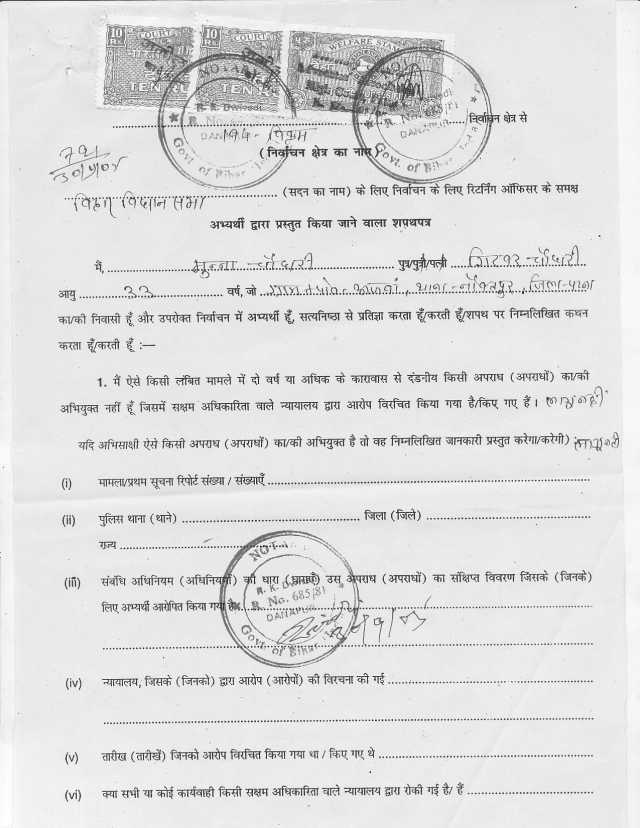 10 Rs COURT
10 Rs COURT
WELFARE STA
TEN RE
TEN RE
NOTARY
R. K. Dwivedi
DANAPUR
Govt. of Bihar
685/81
DANAPUR
Govt. of Bihar
निर्वाचन क्षेत्र से
(निर्वाचन क्षेत्र का नाम)
बिहार विधान सभा (सदन का नाम) के लिए निर्वाचन के लिए रिटर्निंग ऑफिसर के समक्ष
अभ्यर्थी द्वारा प्रस्तुत किया जाने वाला शपथपत्र
मैं, मुन्ना चौधरी पुत्र/पुत्री/पत्नी चौधरी
आयु 33 वर्ष, जो ग्राम
का/की निवासी हूँ और उपरोक्त निर्वाचन में अभ्यर्थी हूँ, सत्यनिष्ठा से प्रतिज्ञा करता हूँ/करती हूँ/शपथ पर निम्नलिखित कथन
करता हूँ/करती हूँ :—
1. मैं ऐसे किसी लंबित मामले में दो वर्ष या अधिक के कारावास से दंडनीय किसी अपराध (अपराधों) का/की
अभियुक्त नहीं हूँ जिसमें सक्षम अधिकारिता वाले न्यायालय द्वारा आरोप विरचित किया गया है/किए गए हैं । लागू नहीं
यदि अभिसाक्षी ऐसे किसी अपराध (अपराधों) का/की अभियुक्त है तो वह निम्नलिखित जानकारी प्रस्तुत करेगा/करेगी) : लागू नहीं
(i) मामला/प्रथम सूचना रिपोर्ट संख्या / संख्याएँ
(ii) पुलिस थाना (थाने) जिला (जिले)
राज्य
(iii) संबंधि अधिनियम (अधिनियमों) की धारा (धाराएँ) उस अपराध (अपराधों) का संक्षिप्त विवरण जिसके (जिनके)
लिए अभ्यर्थी आरोपित किया गया है
NOTARY
R. No. 685/81
DANAPUR
Govt. of Bihar
(iv) न्यायालय, जिसके (जिनको) द्वारा आरोप (आरोपों) की विरचना की गई
(v) तारीख (तारीखें) जिनको आरोप विरचित किया गया था / किए गए थे
(vi) क्या सभी या कोई कार्यवाही किसी सक्षम अधिकारिता वाले न्यायालय द्वारा रोकी गई है/ हैं